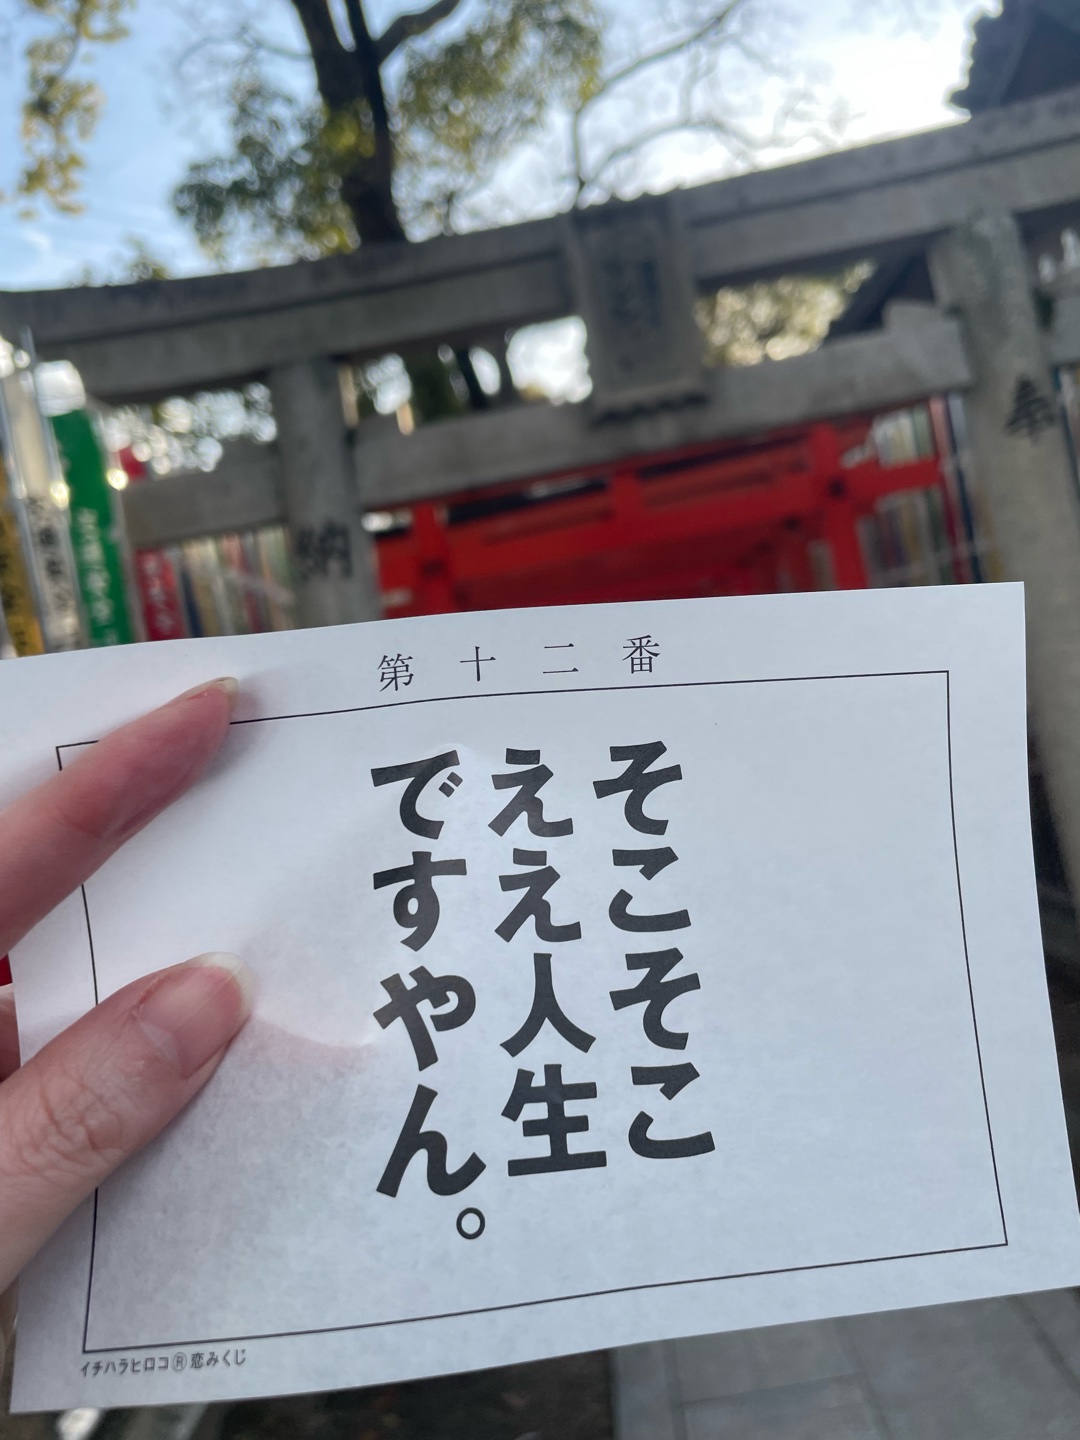 奉
納
第十二番
そこそこ
ええ人生
ですやん。
イチハラヒロコ®恋みくじ